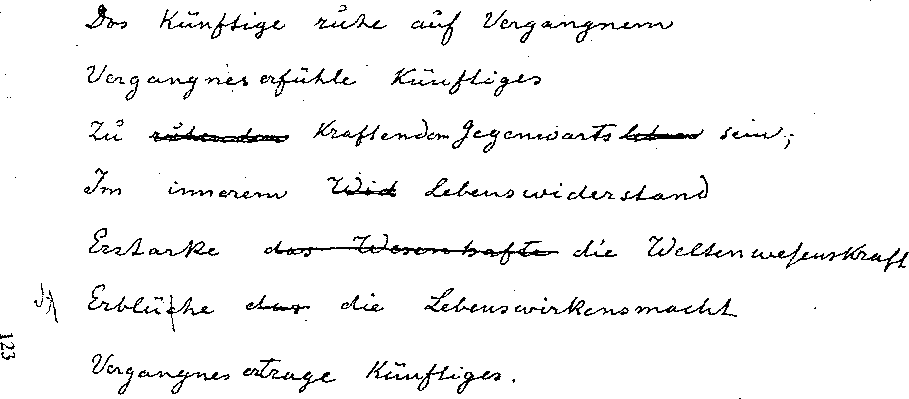 Das Künftige ruhe auf Vergangnem
Vergangnes erfühle Künftiges
Zu ruhendem Kraftendem Gegenwartsleben sein;
Im innerem Wid Lebenswiderstand
Erstarke das Wesenhafte die Weltenwesenskraft
Erblühe das die Lebenswirkensmacht
Vergangnes ertrage Künftiges.
123